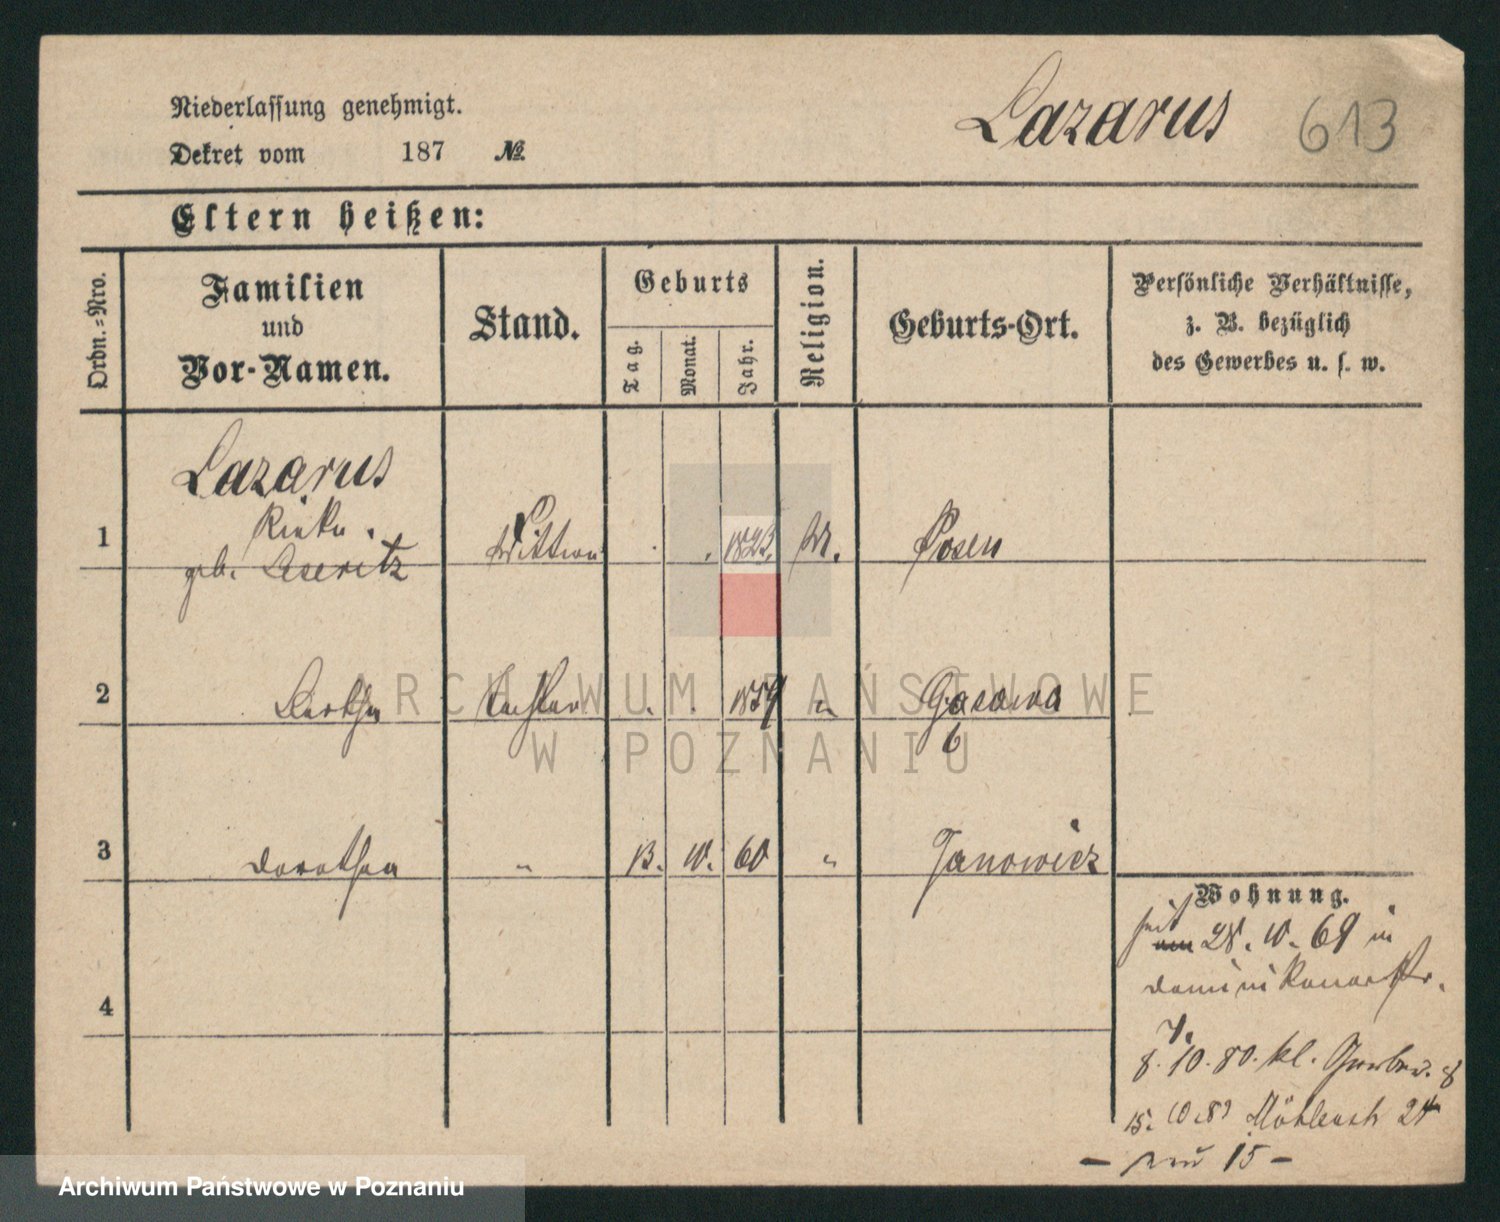 Lazarus 613
Niederlassung genehmigt.
Dekret vom 187 №
Eltern heißen:
Ordn.=Nro.
Familien
und
Vor-Namen.
Stand.
Geburts
Tag.
Monat.
Jahr.
Religion.
Geburts-Ort.
Persönliche Verhältnisse,
z. B. bezüglich
des Gewerbes u. s. w.
Lazarus
1 Rieke Wittwe 1823. Posen
geb.
2 Bertha Tochter 1859 " Gasawa
6
ARCHIWUM PAŃSTWOWE
W POZNANIU
3 Dorothea " 60 " Janowiez
Wohnung.
seit
28. 10. 69 in
Dominikanerstr.
7.
8. 10. 80. kl. Gerberstr. 8
15. 10. 89 Mühlenstr 24
4
- neu 15 -
Archiwum Państwowe w Poznaniu